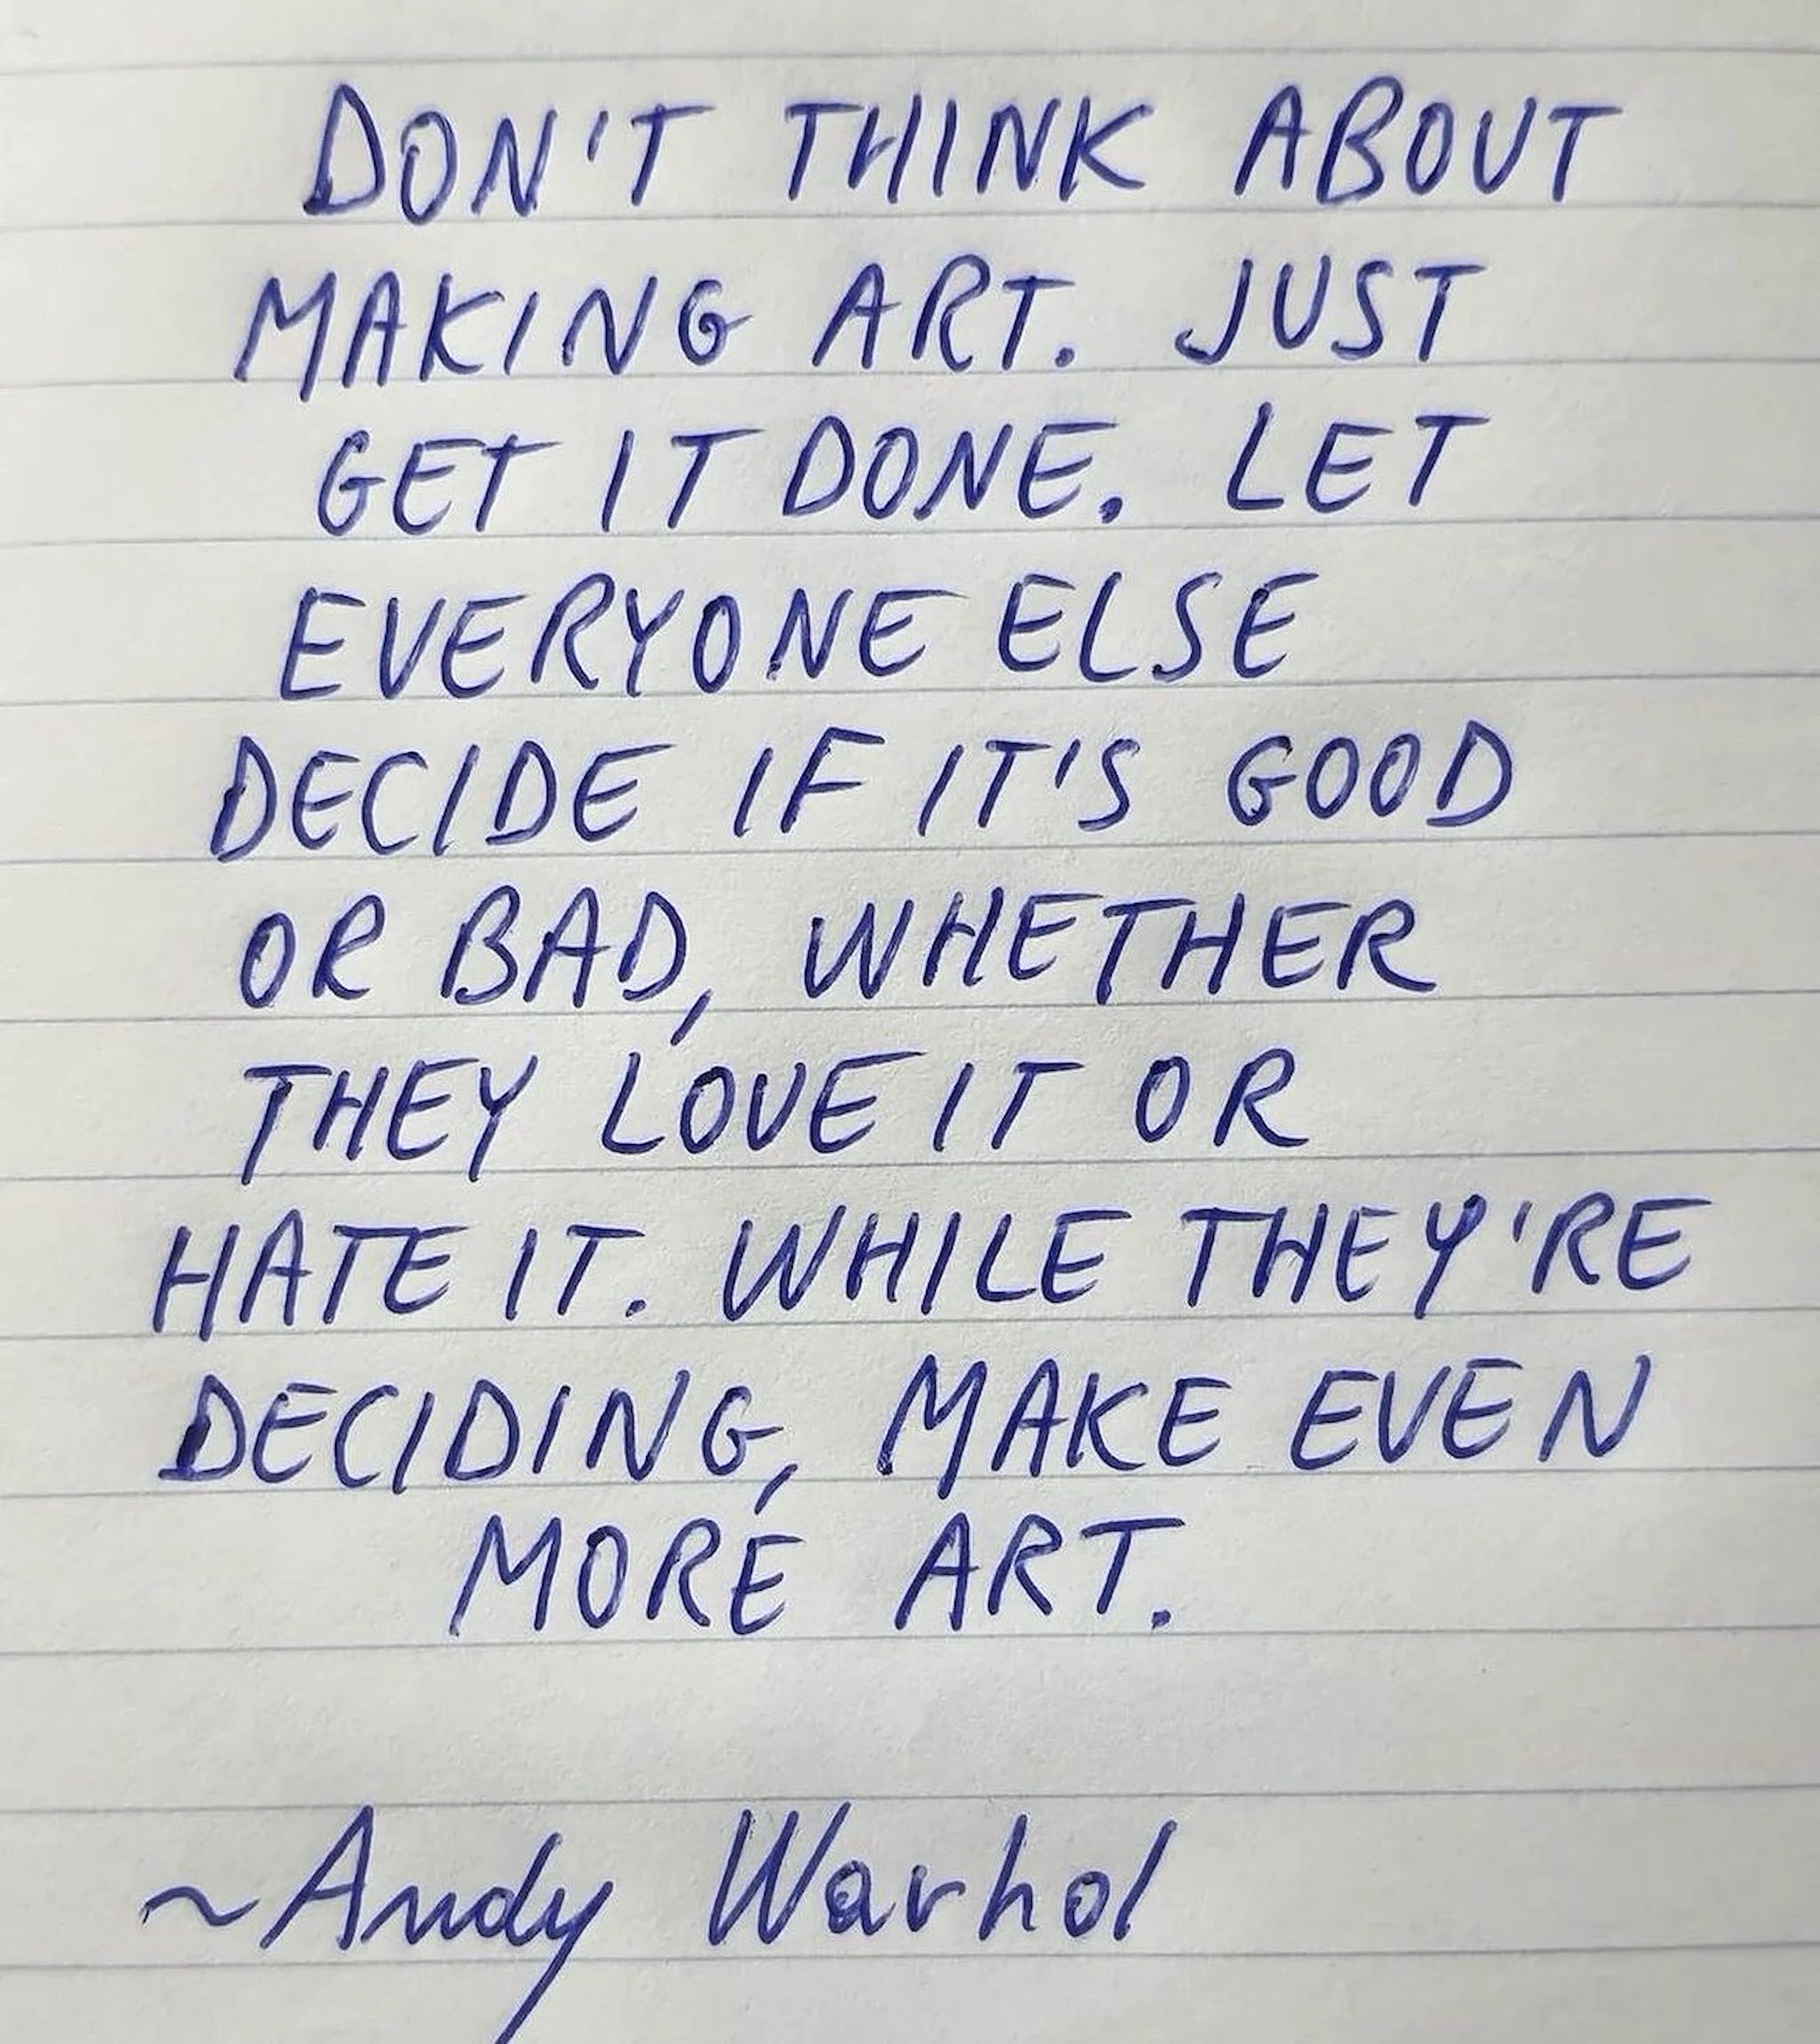 DON'T THINK ABOUT
MAKING ART. JUST
GET IT DONE. LET
EVERYONE ELSE
DECIDE IF IT'S GOOD
OR BAD, WHETHER
THEY LOVE IT OR
HATE IT. WHILE THEY'RE
DECIDING, MAKE EVEN
MORE ART.
~Andy Warhol